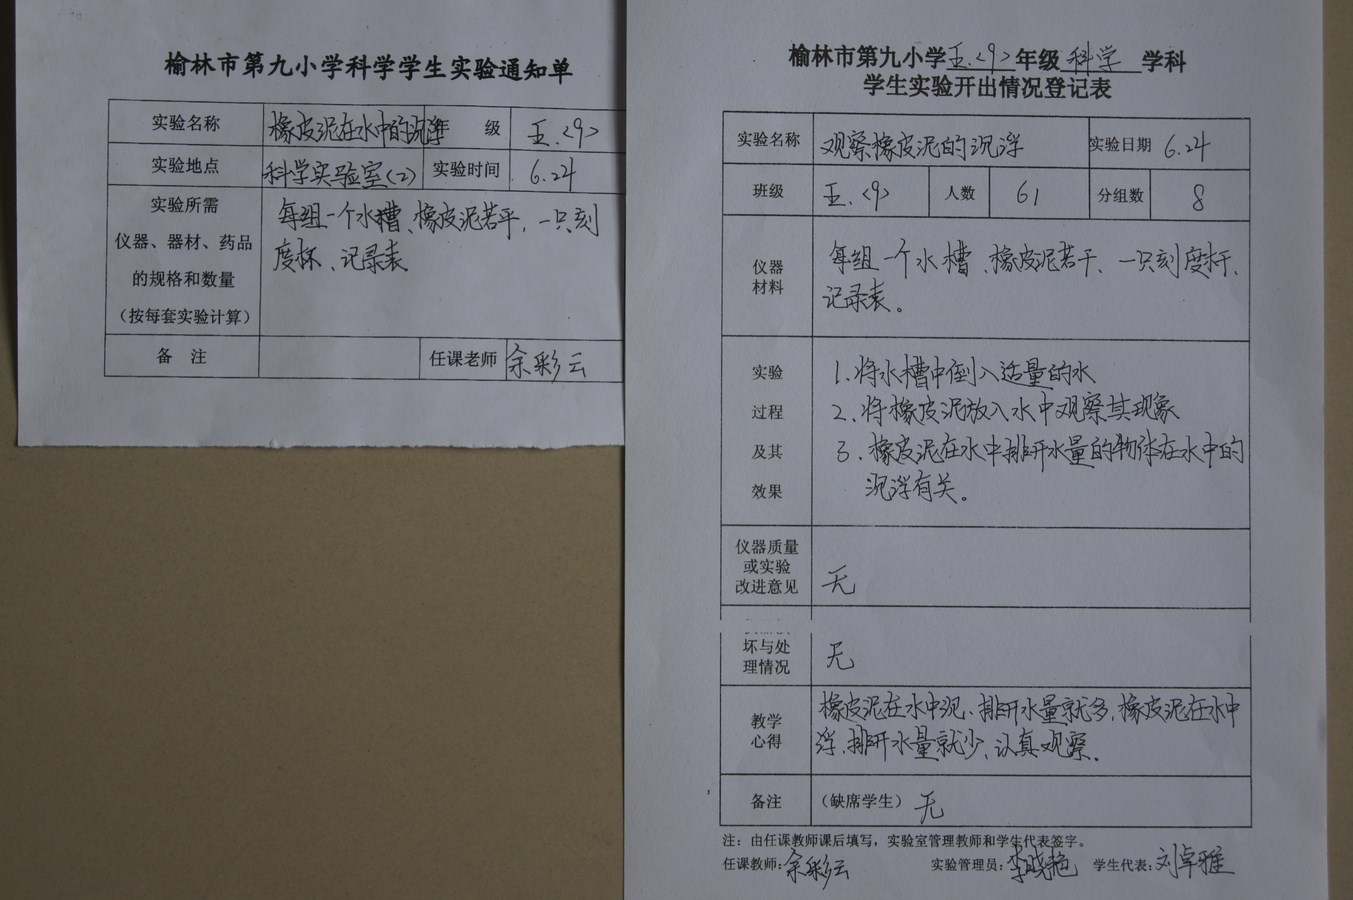 榆林市第九小学科学学生实验通知单
实验名称 橡皮泥在水中的沉浮 年 级 五.<9>
实验地点 科学实验室(2) 实验时间 6.24
实验所需
仪器、器材、药品
的规格和数量
(按每套实验计算)
每组一个水槽、橡皮泥若干，一只刻
度杯、记录表
备 注 任课老师 余彩云
榆林市第九小学五.<9>年级 科学 学科
学生实验开出情况登记表
实验名称 观察橡皮泥的沉浮 实验日期 6.24
班级 五.<9> 人数 61 分组数 8
仪器
材料
每组一个水槽、橡皮泥若干、一只刻度杯、
记录表。
实验
过程
及其
效果
1.将水槽中倒入适量的水
2.将橡皮泥放入水中观察其现象
3.橡皮泥在水中排开水量的物体在水中的
沉浮有关。
仪器质量
或实验
改进意见
无
坏与处
理情况
无
教学
心得
橡皮泥在水中沉、排开水量就多，橡皮泥在水中
浮，排开水量就少，认真观察。
备注 (缺席学生) 无
注：由任课教师课后填写，实验室管理教师和学生代表签字。
任课教师:余彩云 实验管理员:李晓艳 学生代表:刘卓雅